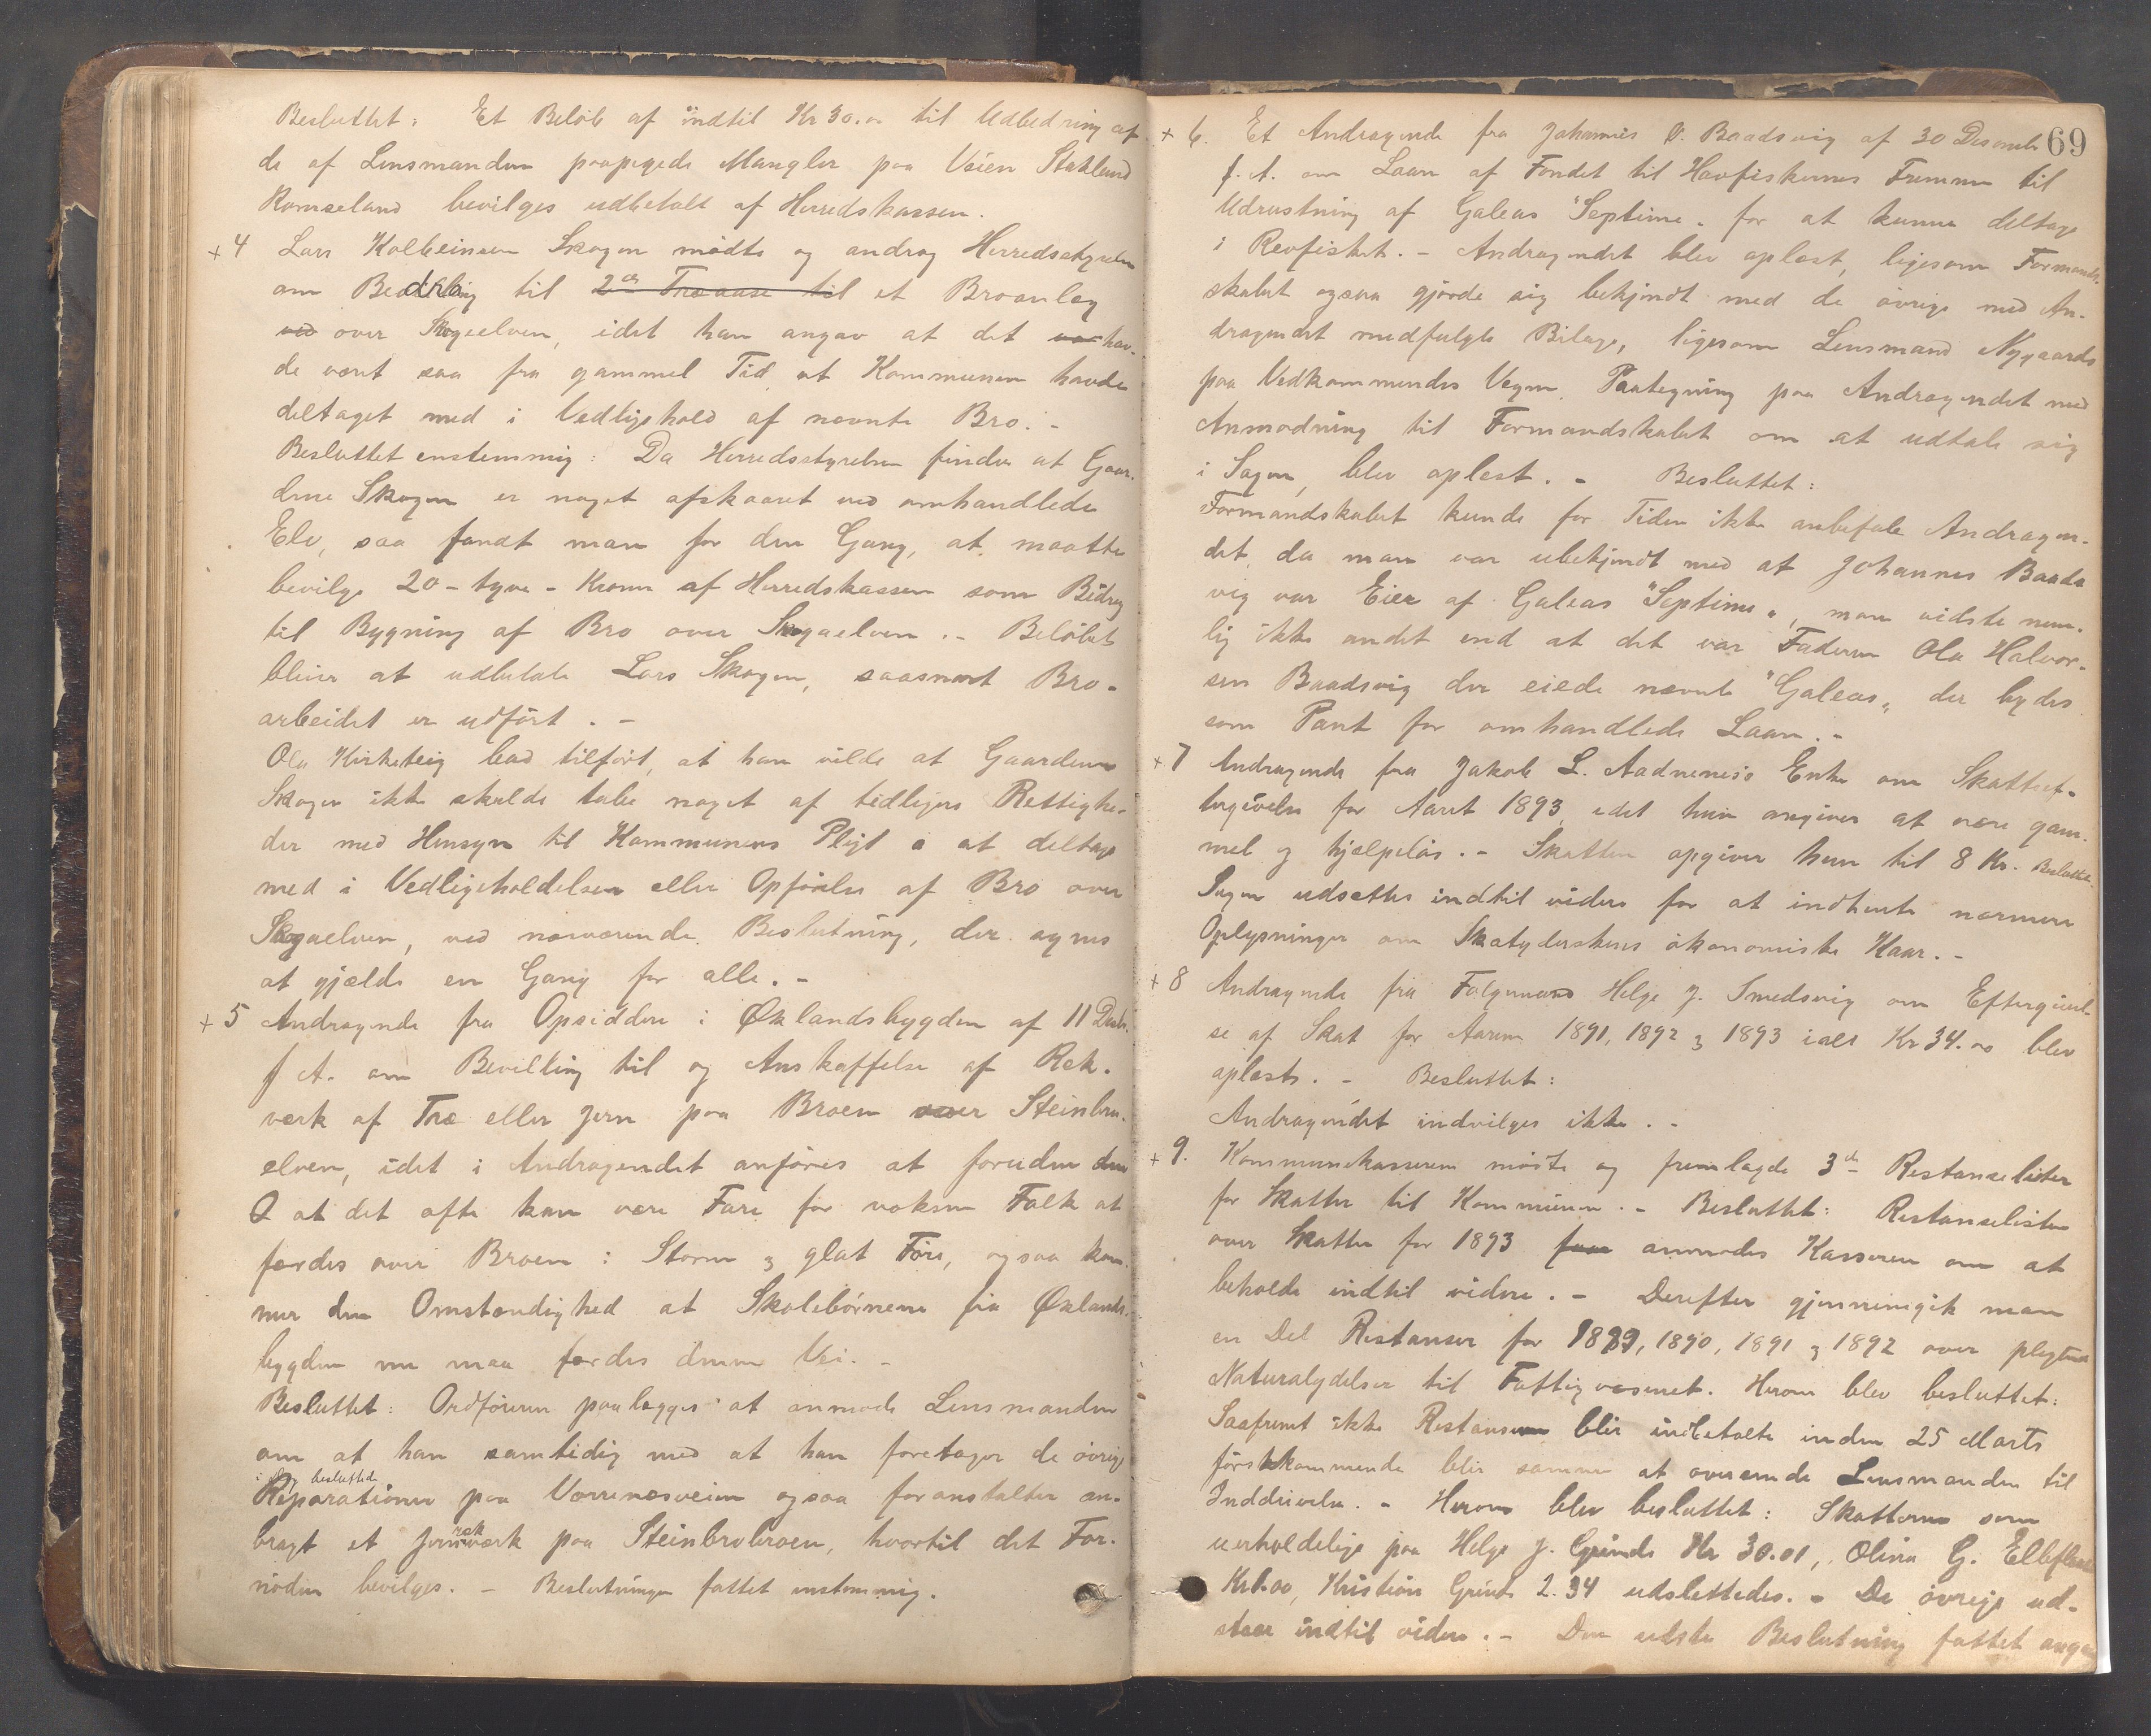 Besluttet: Et Beløb af indtil Kr 30.00 til Udbedring af
de af Lensmanden paapegede Mangler paa Veien Stakland
Ramseland bevilges udbetalt af Herredskassen.
+4 Lars Kolbeinsen Skogen mødte og androg Herredsstyrelsen
om Bedrag til 2de Træaase til et Broanlæg
ved over Skogaelven, idet han angav at det var hav-
de været saa fra gammel Tid at Kommunen havde
deltaget med i Vedligehold af nævnte Bro. -
Besluttet enstemmig: Da Herredsstyrelsen finder at Gaar-
dene Skogen er noget afskaaret ved omhandlede
Elv, saa fandt man for den Gang, at maatte
bevilge 20 - tyve - Kroner af Herredskassen som Bidrag
til Bygning af Bro over Skogaelven. - Beløbet
bliver at udbetale Lars Skogen, saasnart Bro-
arbeidet er udført. -
Ola Kirketeig bad tilført, at han vilde at Gaardene
Skogen ikke skulde tabe noget af tidligere Rettighe-
der med Hensyn til Kommunens Pligt a at deltage
med i Vedligeholdelsen eller Opførelse af Bro over
Skogaelven, ved nærværende Beslutning, der synes
at gjælde en Gang for alle. -
+5 Andragende fra Opsiddere i Øklandsbygden af 11 Decbr.
f A. om Bevilling til og Anskaffelse af Ræk-
værk af Træ eller Jern paa Broen over Steinbru-
elven, idet i Andragendet anføres at foruden den
O at det ofte kan være Fare for voksne Folk at
færdes over Broen i Storm og glat Føre, ogsaa kom-
mer den Omstændighed at Skolebørnene fra Øklands-
bygden nu maa færdes denne Vei. -
Besluttet: Ordføreren paalægges at anmode Lensmanden
om at han samtidig med at han foretager de øvrige
i Dag besluttede
Reparationer paa Vorrenæsveien ogsaa foranstalter an-
bragt et Jernrækværk paa Steinbrobroen, hvortil det For-
nødne bevilges. - Beslutningen fattet enstemmig.
69
+ 6. Et Andragende fra Johannes O. Baadsvig af 30 Desember
f. A. om Laan af Fondet til Havfiskernes Fremme til
Udrustning af Galeas "Septime" for at kunne deltage
i Revfisket. - Andragendet blev oplæst, ligesom Formands-
skabet ogsaa gjorde sig bekjendt med de øvrige med An-
dragendet medfulgte Bilage, ligesom Lensmand Nygaards
paa Vedkommendes Vegne, Paategning paa Andragendet med
Anmodning til Formandskabet om at udtale sig
i Sagen, blev oplæst. - Besluttet:
Formandskabet kunde for Tiden ikke anbefale Andragen-
det, da man var ubekjendt med at Johannes Baads
vig var Eier af Galeas "Septime", man vidste nem-
lig ikke andet end at det var Faderen Ola Halvor-
sen Baadsvig der eiede nævnte "Galeas" der bydes
som Pant for omhandlede Laan. -
+7 Andragende fra Jakob L. Aadnenes's Enke om Skatteef-
tergivelse for Aaret 1893, idet hun angiver at være gam-
mel og hjælpeløs. - Skatten opgiver hun til 8 Kr. Besluttet
Sagen udsættes indtil videre for at indhente nærmere
Oplysninger om Skatyderskens økonomiske Kaar. -
+8 Andragende fra Følgemand Helge J. Smedsvig om Eftergivel-
se af Skat for Aarene 1891, 1892 og 1893 ialt Kr 34.00 blev
oplæst. - Besluttet:
Andragendet indvilges ikke. -
+9. Kommunekassereren mødte og fremlagde 3de Restanselister
for Skatter til Kommunen. - Besluttet: Restanselisten
over Skatter for 1893 anmodes Kasseren om at
beholde indtil videre. - Derefter gjennemgik man
en Del Restanser for 1889, 1890, 1891 og 1892 over pligtede
Naturalydelser til Fattigvæsenet. Herom blev besluttet:
Saafremt ikke Restansene blir indbetalte inden 25 Marts
førstkommende blir samme at oversende Lensmanden til
Inddrivelse. - Herom blev besluttet: Skatterne som
uerholdelige paa Helge J. Grinde Kr 30.01, Olina G.
Kristian Grinde 2.34 udslettedes. - De øvrige ud-
staar indtil videre. - Den sidste Beslutning fattet